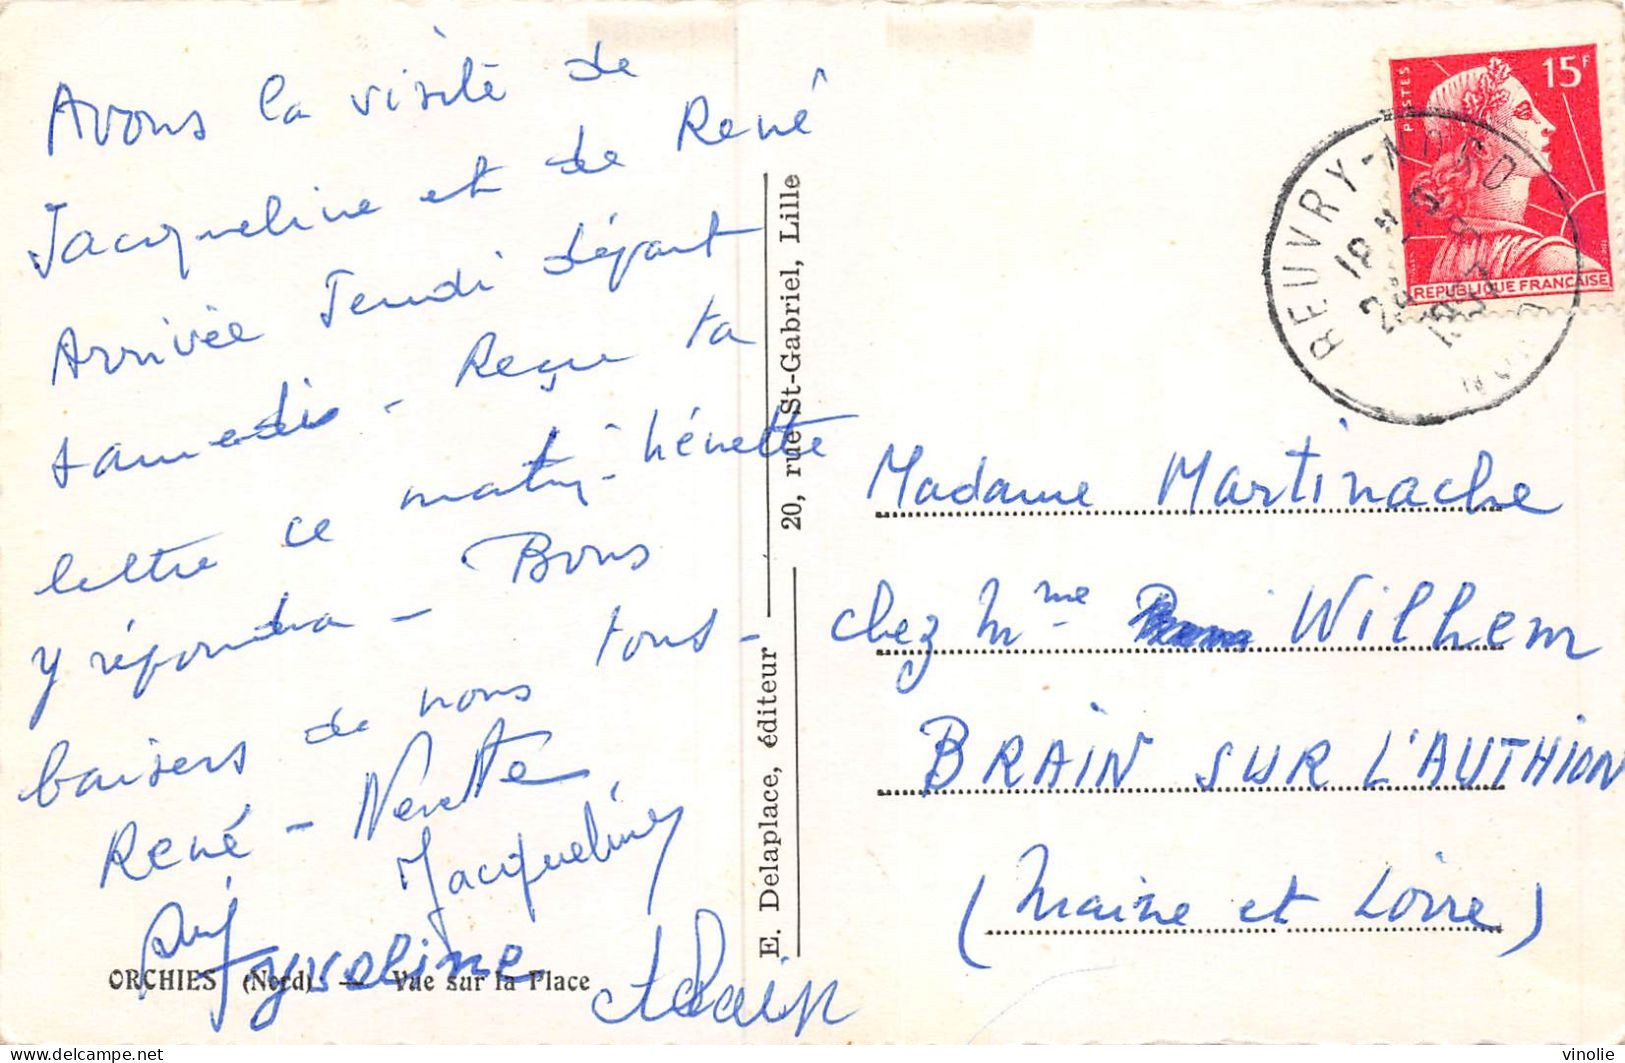 Avons la visite de
Jacqueline et de René
Arrivée Jeudi départ
samedi - Reçu ta
lettre ce matin - Nénette
y répondra - Bons
baisers de nous tous -
René - Nenette
Jacqueline
Jacqueline
Alain
ORCHIES (Nord). — Vue sur la Place
E. Delaplace, éditeur — 20, rue St-Gabriel, Lille
POSTES
15F
REPUBLIQUE FRANÇAISE
BEUVRY-NORD
18 H
1957
NORD
Madame Martinache
chez Mme Wilhem
BRAIN SUR L'AUTHION
(Maine et Loire)
delcampe.net
vinolie